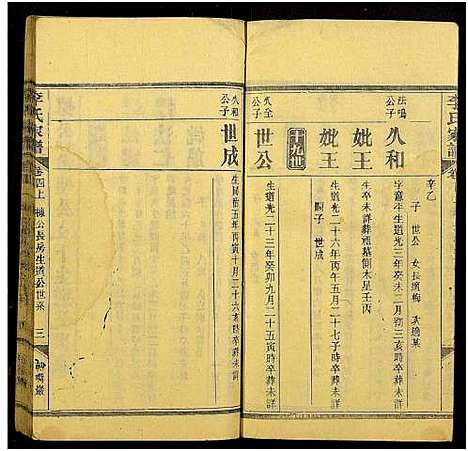 李氏家譜
法鳴公子
久和
字意平生道光癸未二月初三亥時卒葬未詳
子 世公 女長
妣王
生卒未詳葬祖墓側未星壬丙
妣王
生道光二十六年丙午五月二十七子時卒葬未詳
嗣子 世成
十九世
久全公子
世公
生道光二十三年癸卯九月二十五寅時卒葬未詳
久和公子
世成
生同治五年丙寅十月二十六亥時卒葬未詳
李氏家譜
卷四上
公長房生道公世系
三